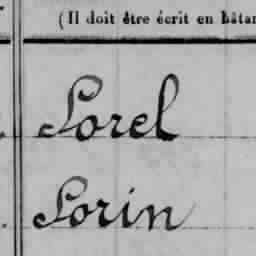 (Il doit être écrit en bâtar
Lorel
Lorin